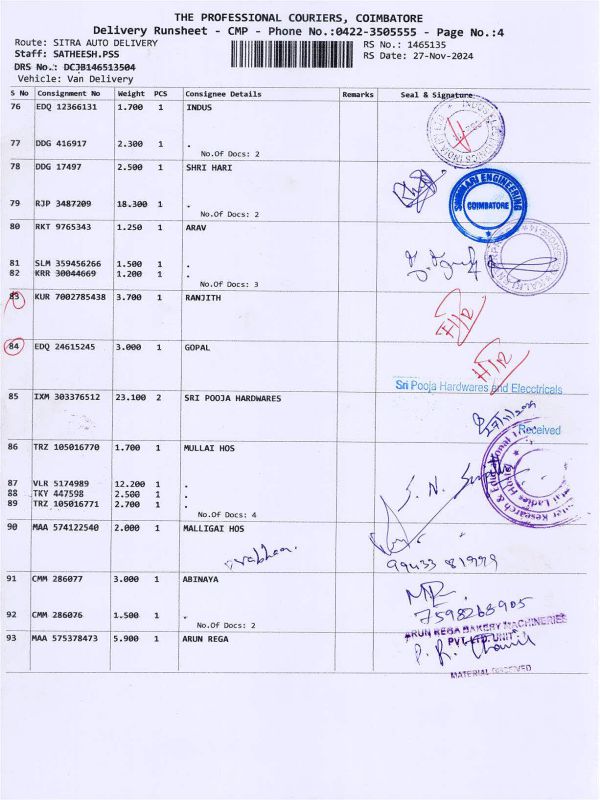 THE PROFESSIONAL COURIERS, COIMBATORE
Delivery Runsheet - CMP - Phone No.:0422-3505555 - Page No.:4
Route: SITRA AUTO DELIVERY RS No.: 1465135
Staff: SATHEESH.PSS RS Date: 27-Nov-2024
DRS No.: DCJB146513504
Vehicle: Van Delivery
S No Consignment No Weight PCS Consignee Details Remarks Seal & Signature
76 EDQ 12366131 1.700 1 INDUS
77 DDG 416917 2.300 1 .
No.Of Docs: 2
78 DDG 17497 2.500 1 SHRI HARI
ENGINEERING
COIMBATORE
79 RJP 3487209 18.300 1 .
No.Of Docs: 2
80 RKT 9765343 1.250 1 ARAV
81 SLM 359456266 1.500 1 .
82 KRR 30044669 1.200 1 .
No.Of Docs: 3
83 KUR 7002785438 3.700 1 RANJITH
84 EDQ 24615245 3.000 1 GOPAL
Sri Pooja Hardwares and Elecctricals
85 IXM 303376512 23.100 2 SRI POOJA HARDWARES
27/11/2024
Received
86 TRZ 105016770 1.700 1 MULLAI HOS
87 VLR 5174989 12.200 1 .
88 TKY 447598 2.500 1 .
89 TRZ 105016771 2.700 1 .
No.Of Docs: 4
90 MAA 574122540 2.000 1 MALLIGAI HOS
99433 81999
91 CMM 286077 3.000 1 ABINAYA
7598268905
92 CMM 286076 1.500 1 .
No.Of Docs: 2
ARUN REGA BAKERY MACHINERIES
PVT. LTD. UNIT
93 MAA 575378473 5.900 1 ARUN REGA
MATERIAL RECEIVED